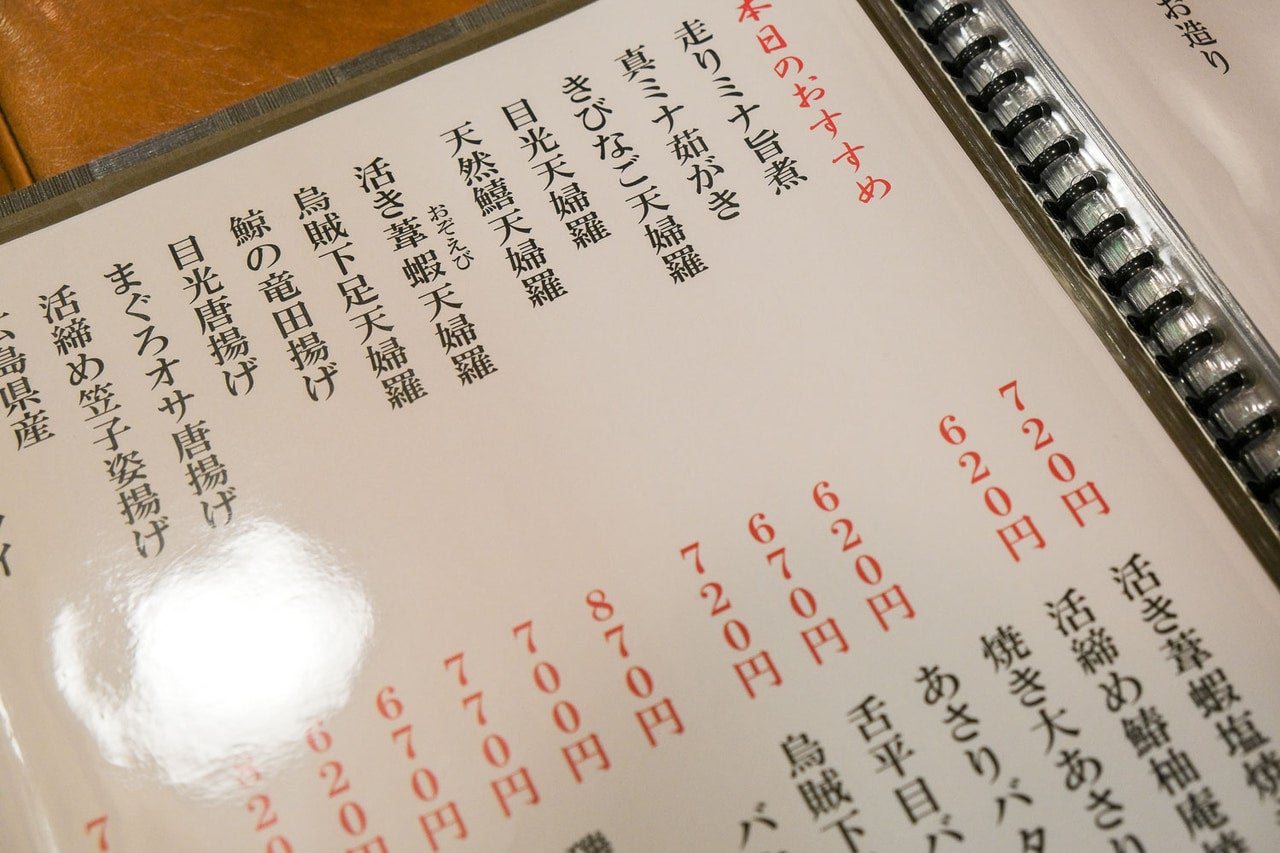 お造り
本日のおすすめ
走りミナ旨煮 720円
真ミナ茹がき 620円
きびなご天婦羅 620円
目光天婦羅 670円
天然鱚天婦羅 720円
おぞえび
活き葦蝦天婦羅 870円
烏賊下足天婦羅 700円
鯨の竜田揚げ 770円
目光唐揚げ 670円
まぐろオサ唐揚げ 620円
活締め笠子姿揚げ
広島県産 7
活き葦蝦塩焼
活締め鰆柚庵焼
焼き大あさり
あさりバタ
舌平目バ
烏賊下
バ